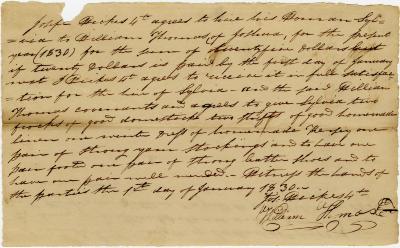 Joseph Dickes 4th agrees to hire his Woman Syl-
via to William Thomas of Joshua, for the present
year (1830) for the sum of twentyfive dollars but
if twenty Dollars is paid by the first day of January
next J Dickes 4th agrees to receive it in full satisfac-
-tion for the hire of Sylvia - and the said William
Thomas covenants and agrees to give Sylvia two
frocks of good domestock two shifts of good homemade
linen one winter dress of homemade Kersey one
pair of strong yarn Stockings and to have one
pair foot one pair of strong leather Shoes and to
have one pair well mended - Witness the hands of
the parties the 1st day of January 1830 -
Jos. Dickes 4th
William Thomas